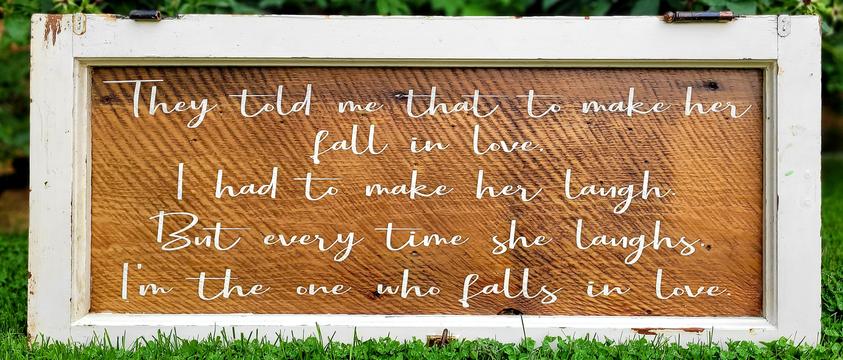 They told me that to make her
fall in love.
I had to make her laugh.
But every time she laughs.
I'm the one who falls in love.